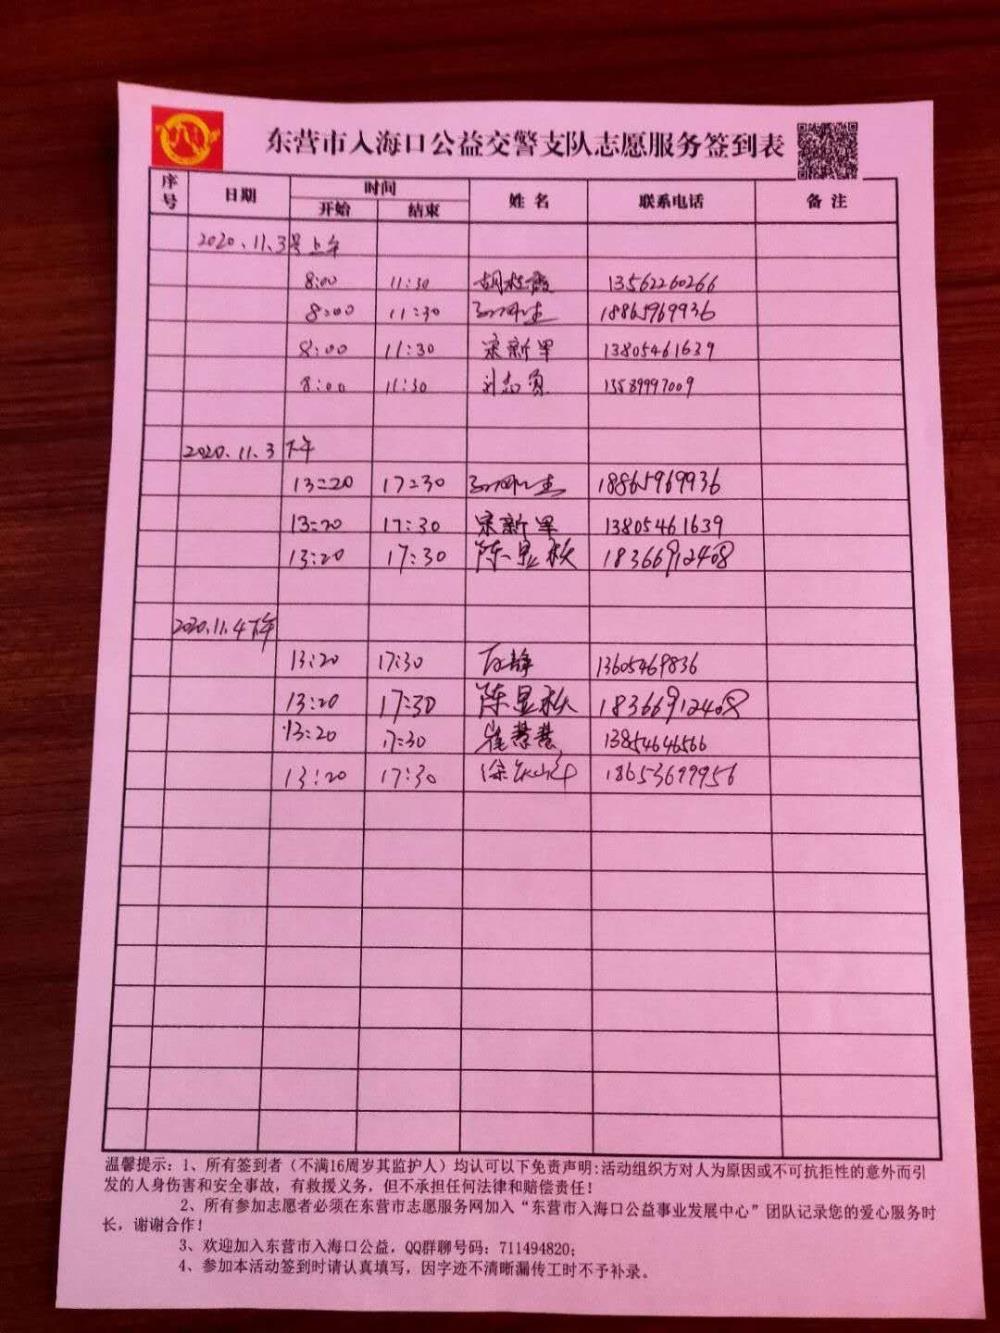 东营市入海口公益交警支队志愿服务签到表
序号 日期 时间 姓名 联系电话 备注
开始 结束
2020.11.3号上午
8:00 11:30 13562260266
8:00 11:30 18865969936
8:00 11:30 宋新军 13805461639
8:00 11:30 刘志 15589997009
2020.11.3 下午
13:20 17:30 18865969936
13:20 17:30 宋新军 13805461639
13:20 17:30 陈显 18366912408
2020.11.4下午
13:20 17:30 静 13605469836
13:20 17:30 陈显 18366912408
13:20 17:30 崔慧慧 13854646566
13:20 17:30 徐 18653699956
温馨提示：1、所有签到者（不满16周岁其监护人）均认可以下免责声明:活动组织方对人为原因或不可抗拒性的意外而引
发的人身伤害和安全事故，有救援义务，但不承担任何法律和赔偿责任！
2、所有参加志愿者必须在东营市志愿服务网加入“东营市入海口公益事业发展中心”团队记录您的爱心服务时
长，谢谢合作！
3、欢迎加入东营市入海口公益，QQ群聊号码：711494820;
4、参加本活动签到时请认真填写，因字迹不清晰漏传工时不予补录。